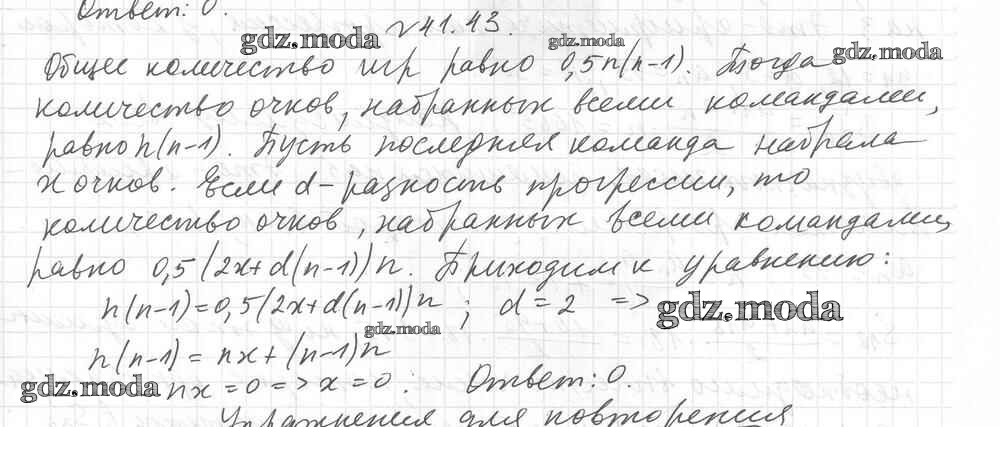 Ответ: 0.
№41.43.
Общее количество игр равно 0,5n(n-1). Тогда
количество очков, набранных всеми командами,
равно n(n-1). Пусть последняя команда набрала
x очков. Если d - разность прогрессии, то
количество очков, набранных всеми командами,
равно 0,5(2x+d(n-1))n. Приходим к уравнению:
n(n-1)=0,5(2x+d(n-1))n ; d=2 =>
n(n-1) = nx+(n-1)n
nx=0 => x=0; Ответ: 0.
Упражнения для повторения
gdz.moda
gdz.moda
gdz.moda
gdz.moda
gdz.moda
gdz.moda